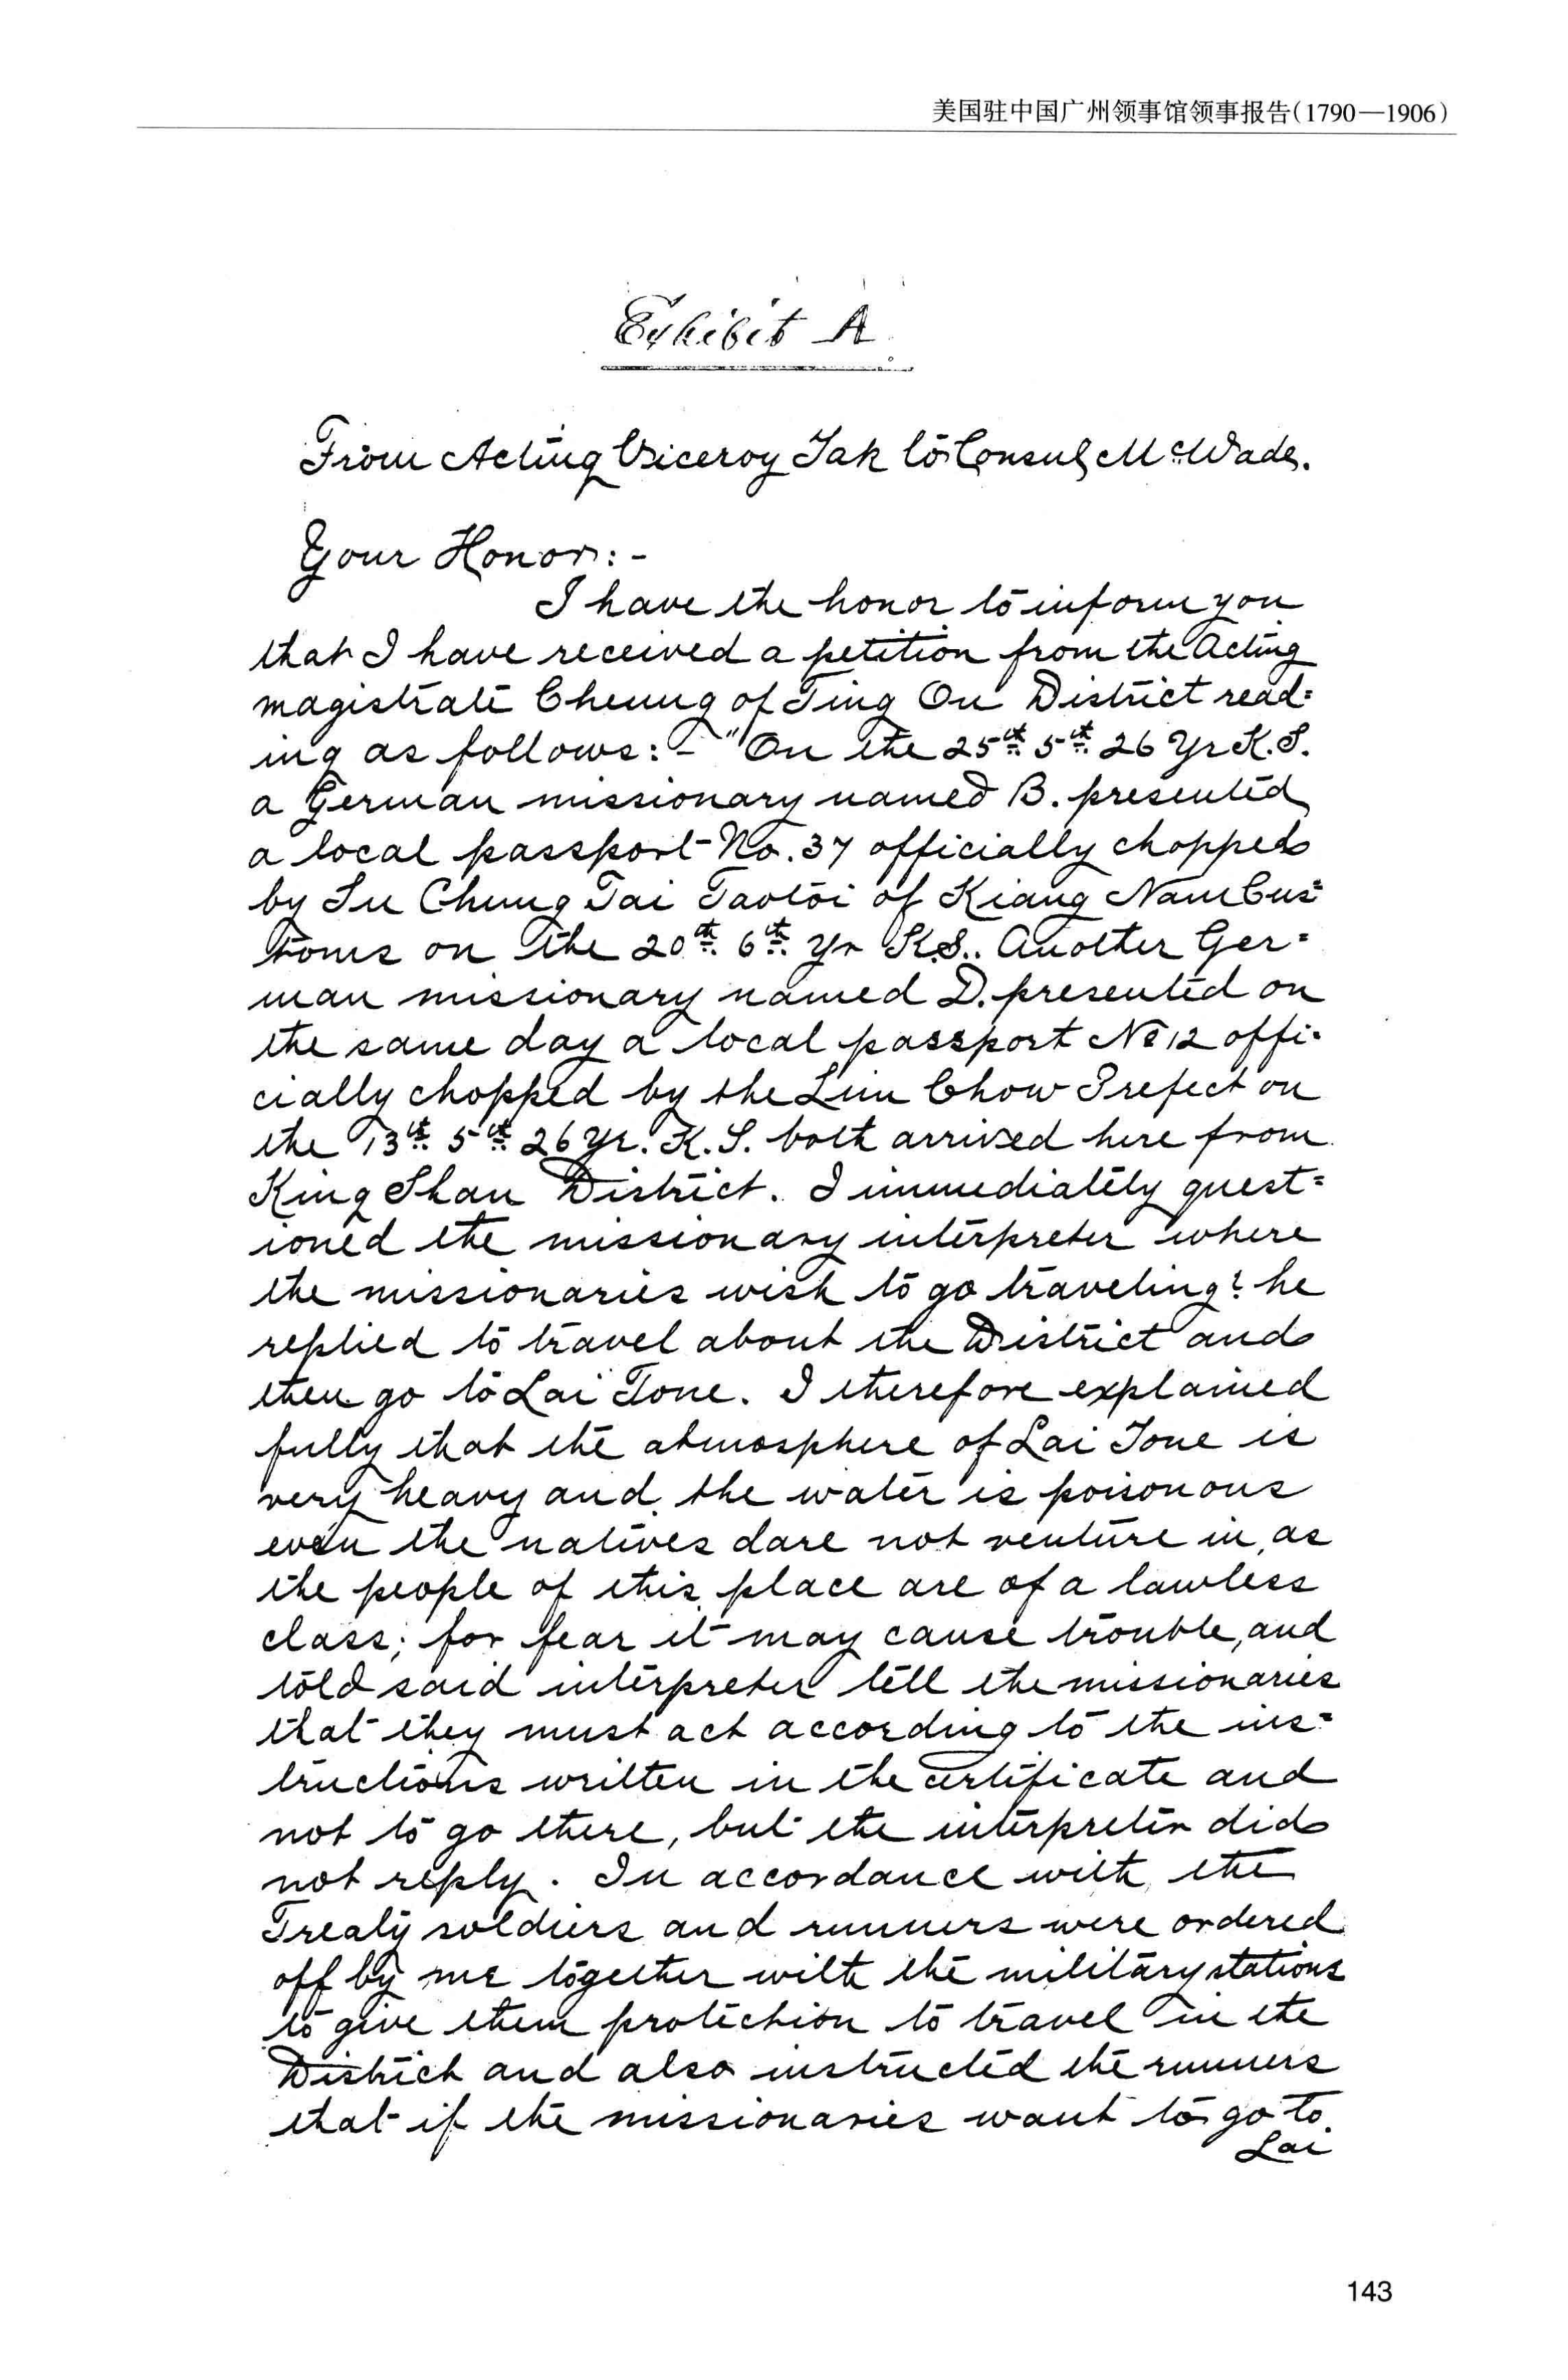 美国驻中国广州领事馆领事报告(1790—1906)
Exhibit A
From Acting Viceroy Tak to Consul McWade.
Your Honor:-
I have the honor to inform you
that I have received a petition from the Acting
magistrate Cheung of Ting On District read=
ing as follows:- "On the 25th 5th 26 Yr K.S.
a German missionary named B. presented
a local passport No. 37 officially chopped
by Su Chung Tai Taotoi of Kiang Nam Cus=
toms on the 20th 6th Yr K.S.. Another Ger=
man missionary named D. presented on
the same day a local passport No 12 offi-
cially chopped by the Lim Chow Prefect on
the 13th 5th 26 Yr. K.S. both arrived here from
King Shan District. I immediately quest=
ioned the missionary interpreter where
the missionaries wish to go traveling? he
replied to travel about the District and
then go to Lai Tone. I therefore explained
fully that the atmosphere of Lai Tone is
very heavy and the water is poisonous
even the natives dare not venture in, as
the people of this place are of a lawless
class; for fear it may cause trouble, and
told said interpreter tell the missionaries
that they must act according to the ins=
tructions written in the certificate and
not to go there, but the interpreter did
not reply. In accordance with the
Treaty soldiers and runners were ordered
off by me together with the military stations
to give them protection to travel in the
District and also instructed the runners
that if the missionaries want to go to
Lai
143